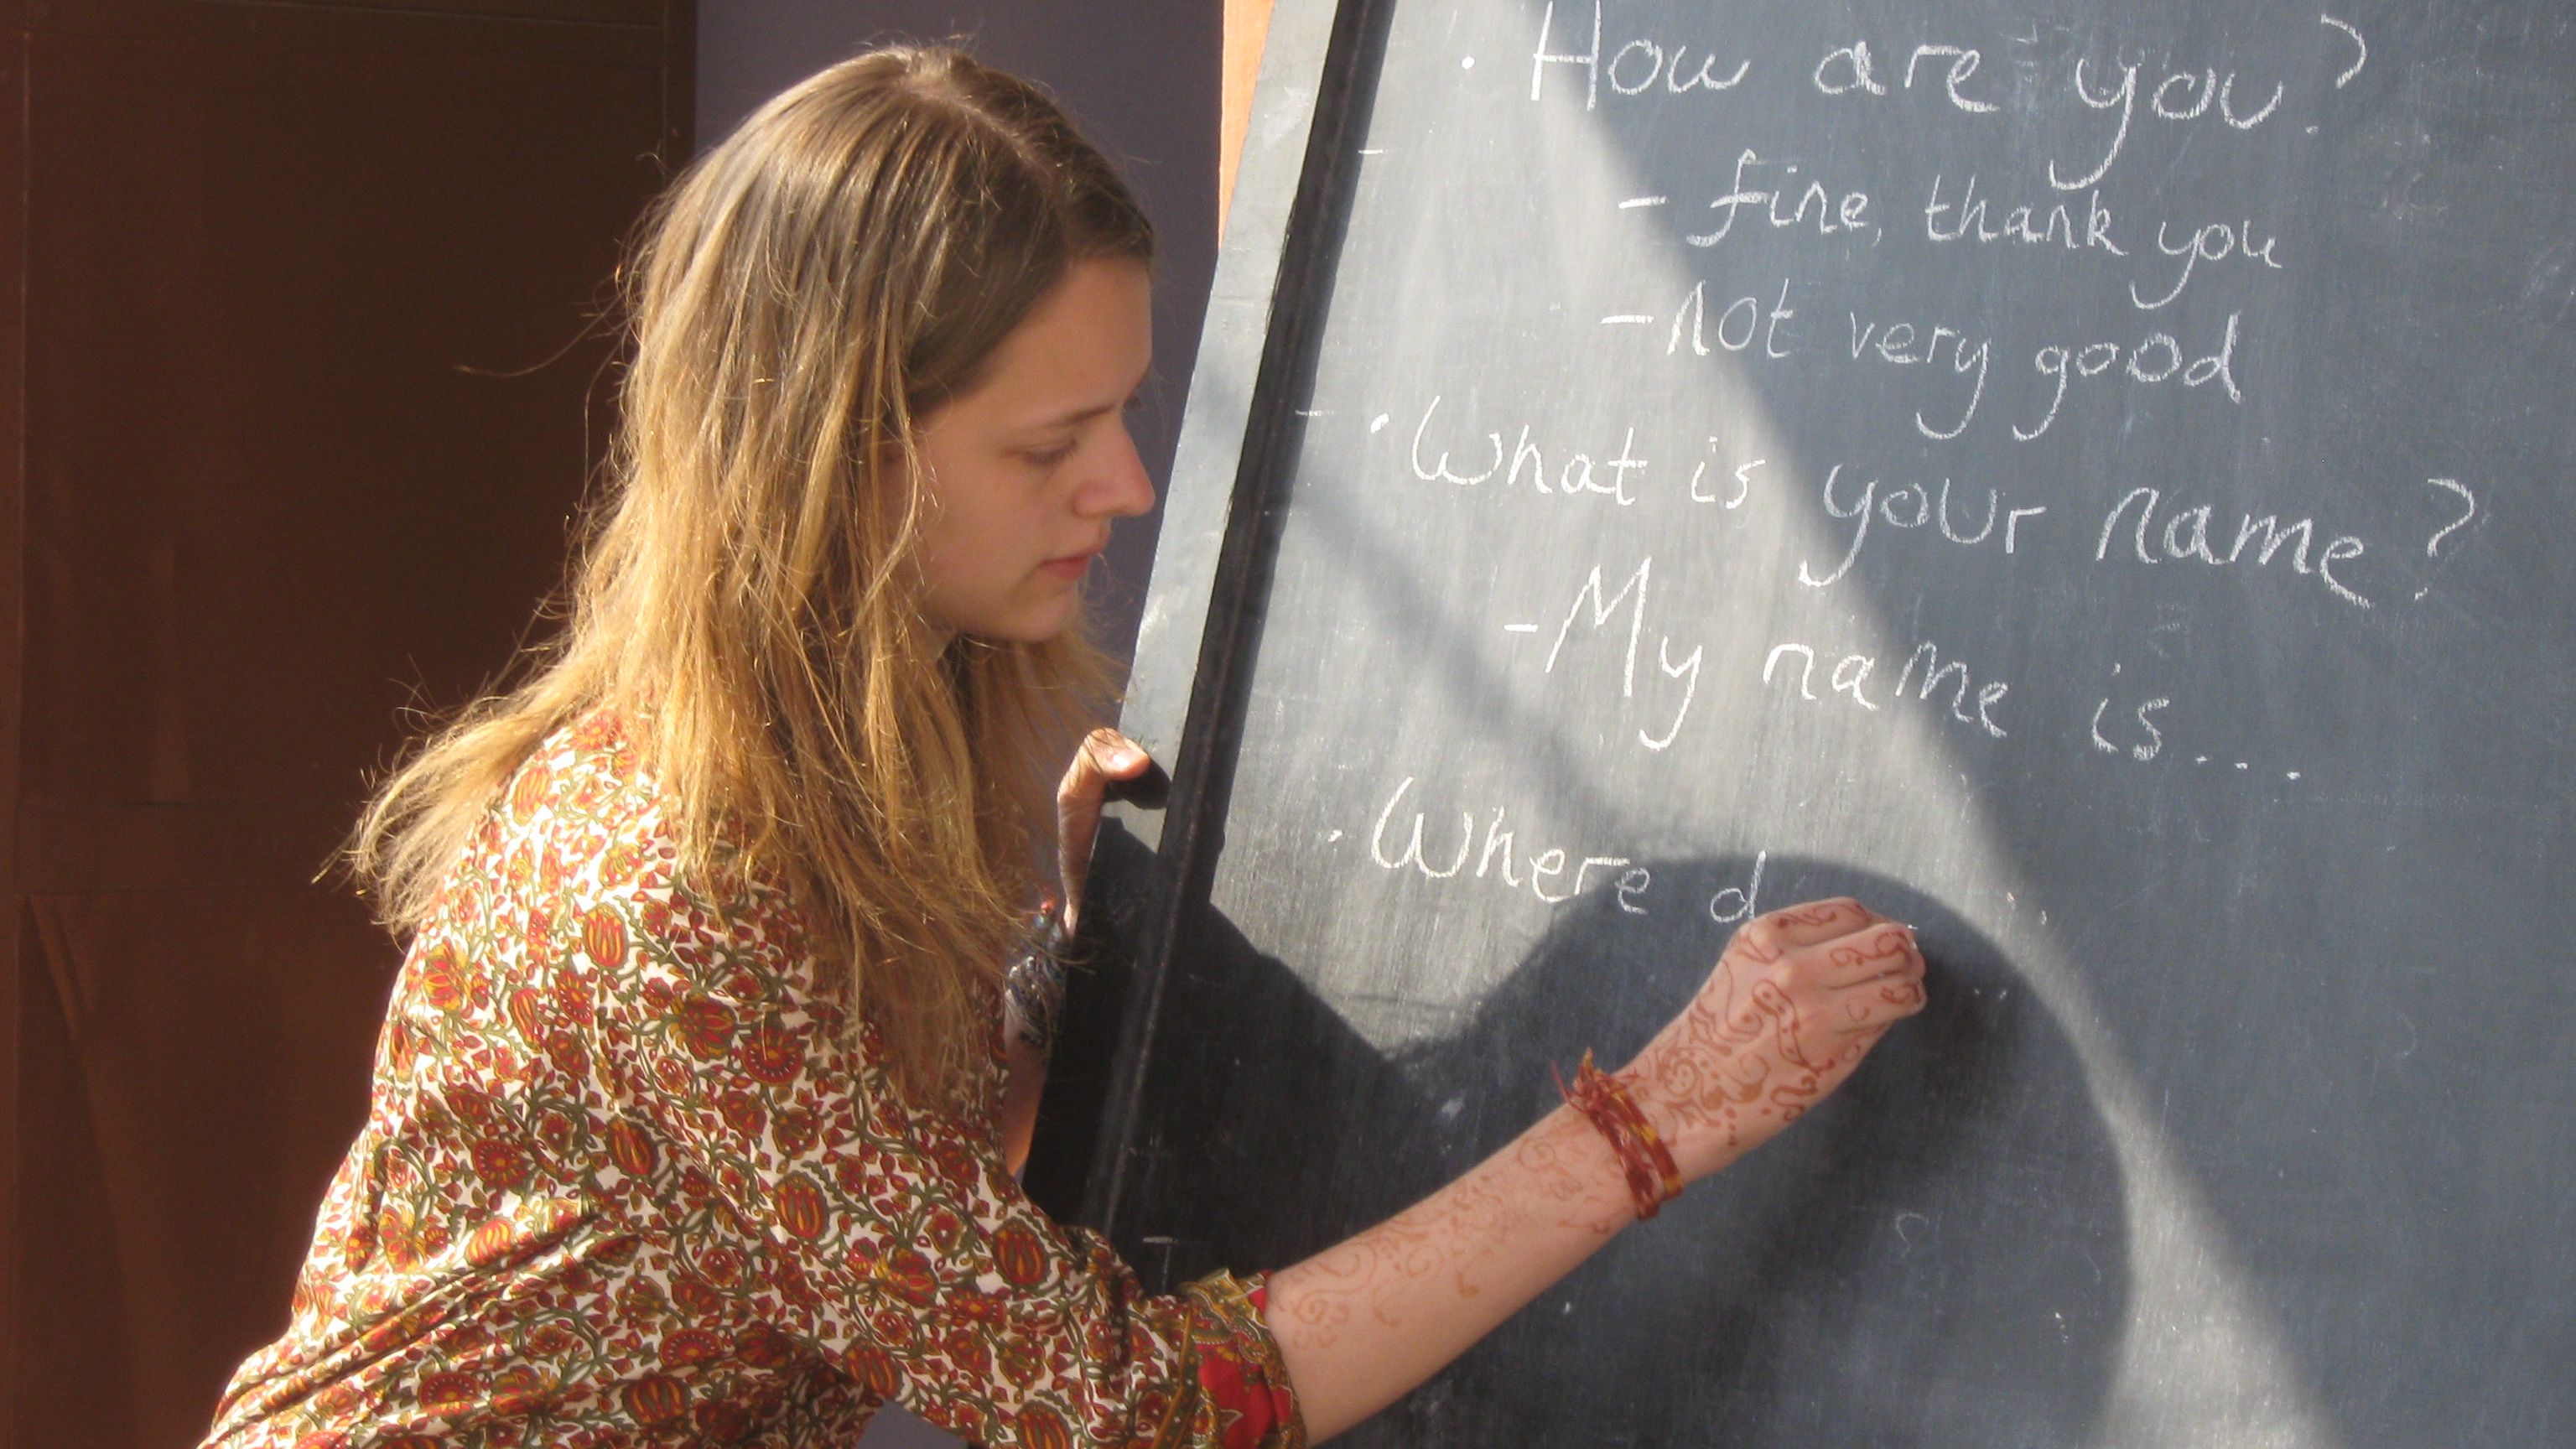 · How are you?
- fine, thank you
- not very good
· What is your name?
- My name is...
· Where d